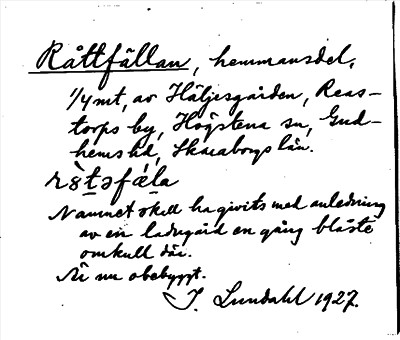 Råttfällan, hemmansdel,
1/4 mt, av Häljesgården, Reas-
torps by, Högstena sn, Gud-
hems hd, Skaraborgs län.
Namnet skall ha givits med anledning
av en ladugård en gång blåste
omkull där.
Är nu obebyggt.
J. Lundahl 1927.